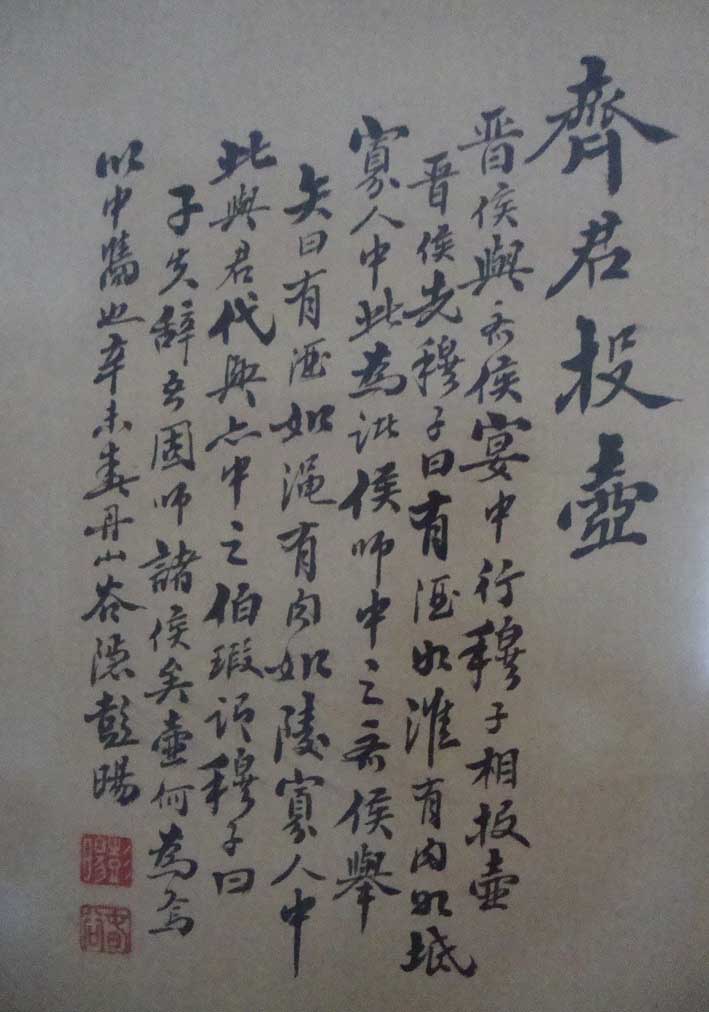 齊君投壺
晋侯與齐侯宴中行穆子相投壺
晋侯先穆子曰有酒如淮有肉如坻
寡人中此為諸侯師中之齐侯舉
矢曰有酒如渑有肉如陵寡人中
此與君代興亦中之伯瑕謂穆子曰
子失辞吾固師諸侯矣壺何為焉
以中儁也辛未春丹山谷隐彭暘
彭暘